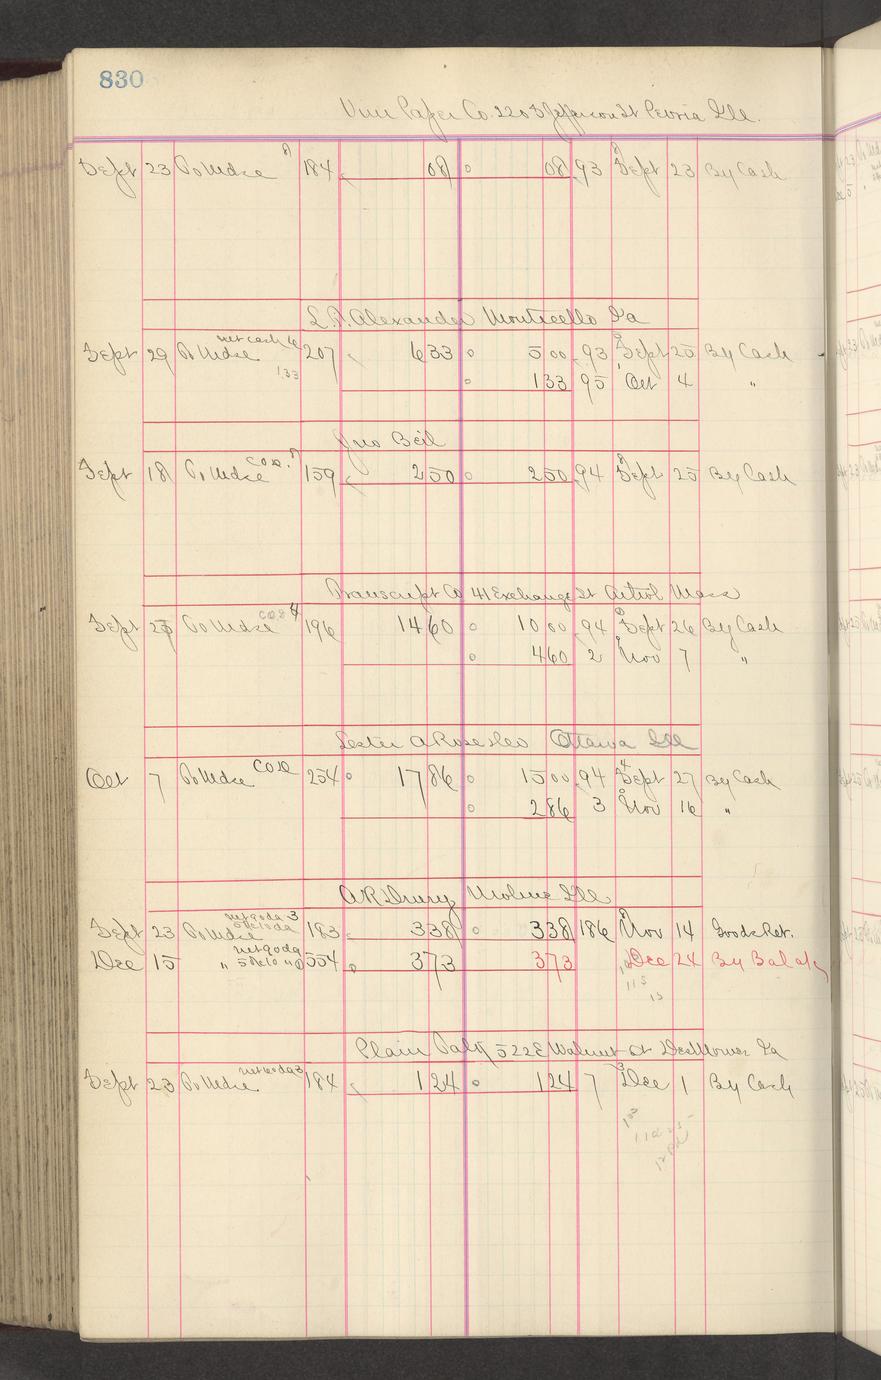 830
Paper Co. 220 S Jefferson St Peoria Ill.
Sept 23 To Mdse 184 08 08 93 Sept 23 By Cash
L. P. Alexander Monticello Ia
Sept 29 To Mdse net cash 207 633 500 93 Sept 25 By Cash
133 133 95 Oct 4 "
Jno Beil
Sept 18 To Mdse COD. 159 250 250 94 Sept 25 By Cash
Transcript Co 41 Exchange St Athol Mass
Sept To Mdse 4 196 1460 1000 94 Sept 26 By Cash
460 2 Nov 7 "
Lester A Rose Ottawa Ill
Oct 7 To Mdse COD 254 1786 1500 94 Sept 27 By Cash
286 3 Nov 16 "
A R Drury Moline Ill
Sept 23 To Mdse net 90 da 3 183 338 338 186 Nov 14 Goods Ret.
Dec 15 " net 90 da 554 373 373 Dec 24 By Bal
Plain Talk 522 E Walnut St Des Moines Ia
Sept 23 To Mdse net 60 da 3 184 124 124 7 Dec 1 By Cash